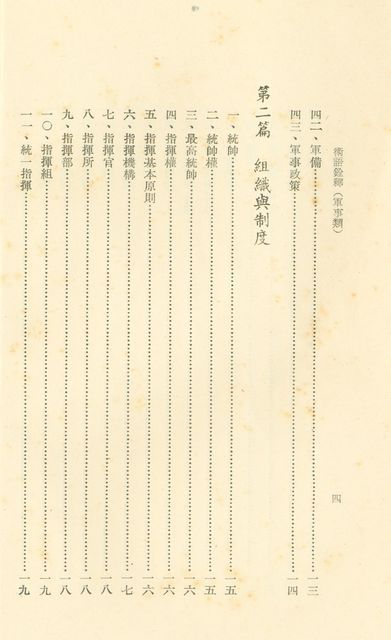 術語詮釋（軍事類）
四
四二、軍備……一三
四三、軍事政策……一四
第二篇　組織與制度
一、統帥……一五
二、統帥權……一五
三、最高統帥……一六
四、指揮權……一六
五、指揮基本原則……一六
六、指揮機構……一七
七、指揮官……一八
八、指揮所……一八
九、指揮部……一八
一〇、指揮組……一九
一一、統一指揮……一九